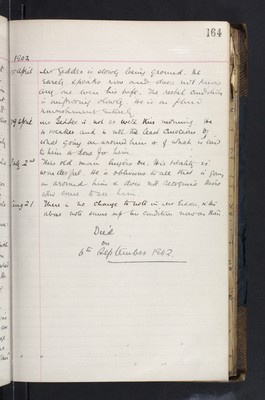 164
1902
April Mr Geddes is slowly losing ground. He
rarely speaks now and does not know
any one even his wife. The rectal condition
is improving slowly. He is on fluid
nourishment entirely
April Mr Geddes is not so well this morning. He
is weaker and is not the least conscious of
what going on around him or of what is said
to him or done for him.
July 2nd This old man lingers on. His vitality is
wonderful. He is oblivious to all that is going
on around him & does not recognise those
who come to see him.
Aug 21 There is no change to note in Mr Geddes, the
above note sums up his condition now as then
Died
on
6th September 1902.